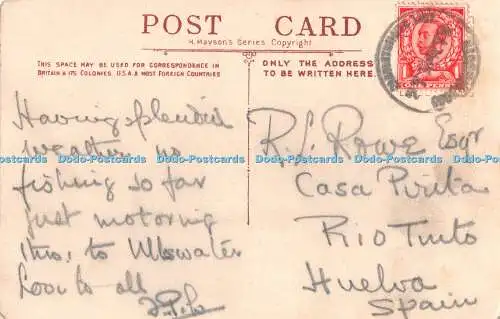 POST CARD
H. Mayson's Series Copyright
THIS SPACE MAY BE USED FOR CORRESPONDENCE IN
BRITAIN & ITS COLONIES, U.S.A. & MOST FOREIGN COUNTRIES
ONLY THE ADDRESS
TO BE WRITTEN HERE.
ONE PENNY
Having splendid
weather no
fishing so far
just motoring
thro' to Ullswater
Love to all
R. L. Rowe Esqr
Casa
Rio Tinto
Huelva
Spain
Dodo-Postcards Dodo-Postcards Dodo-Postcards Dodo-Postcards Dodo-Postcards